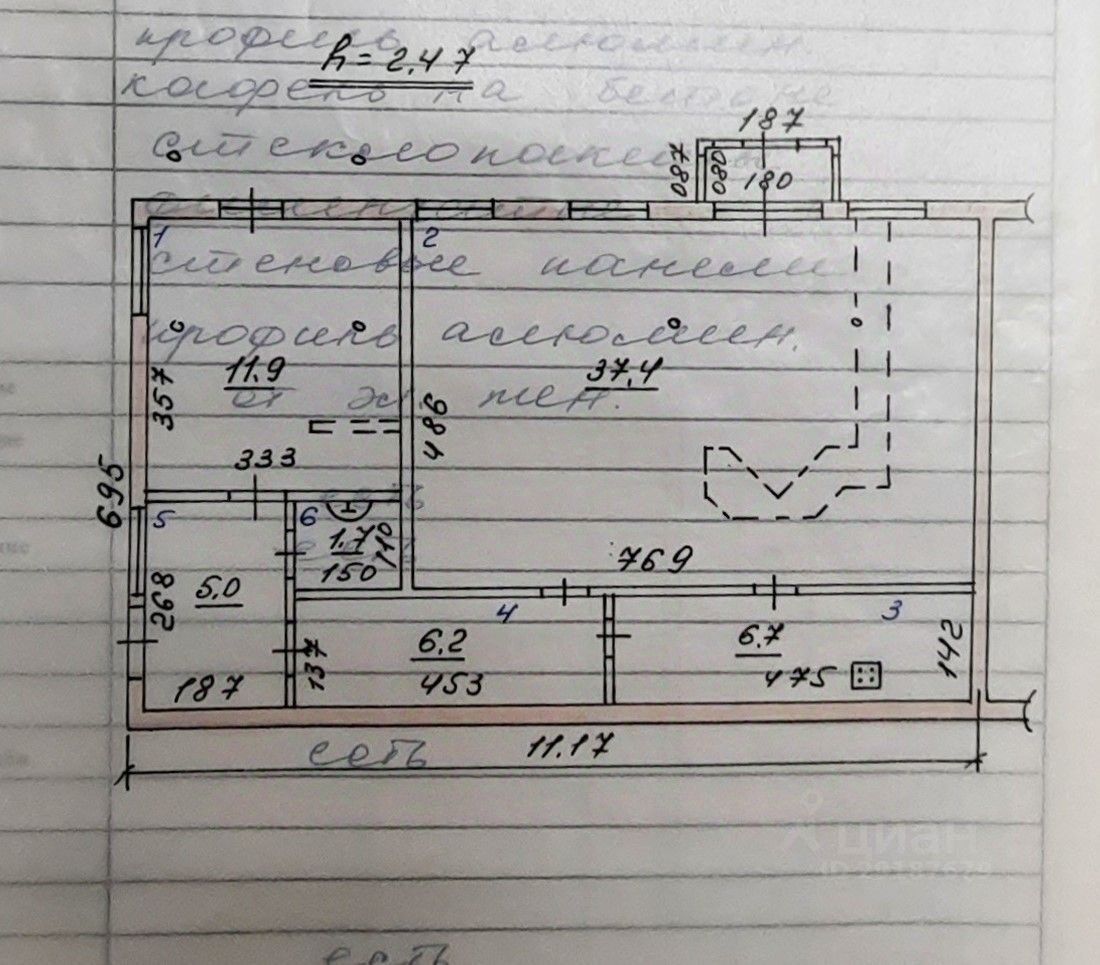 профиль алюмин
h = 2.47
кафель на бетоне
187
стеклопакет
087 080
180
1 2
стеновые панели
профиль алюмин.
11.9 37,4
357
486
333
695
5 6
1.7 110
150 769
268 5.0
4 3
6.2 6.7
137 142
187 453 475
есть 11.17
циан
есть